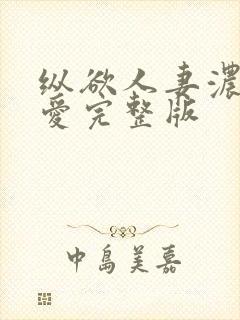 纵欲人妻濃
愛完整版
中島美嘉